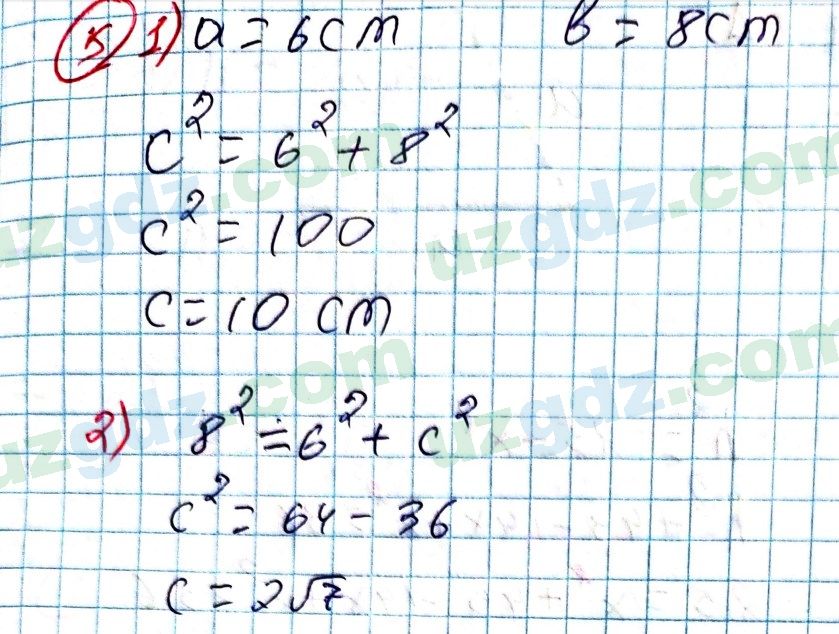 5 1) a = 6cm b = 8cm
c² = 6² + 8²
c² = 100
c = 10 cm
2) 8² = 6² + c²
c² = 64 - 36
c = 2√7
uzgdz.com
uzgdz.com
uzgdz.com
uzgdz.com